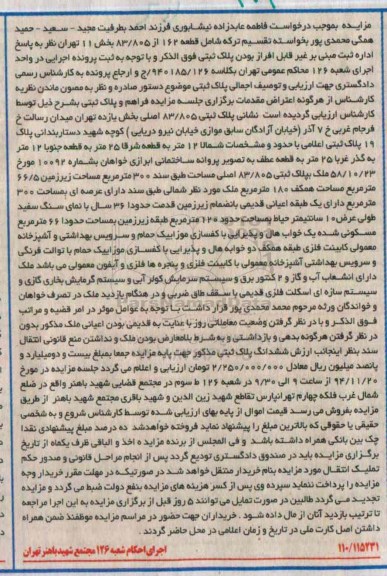 مزایده بموجب درخواست فاطمه عابدزاده نیشابوری فرزند احمد بطرفیت مجید - سعید - حمید
همگی محمدی پور بخواسته تقسیم ترکه شامل قطعه ۱۶۲ از ۸۳/۸۰۵ بخش ۱۱ تهران نظر به پاسخ
اداره ثبت مبنی بر غیر قابل افراز بودن پلاک ثبتی فوق الذکر و با توجه به ثبت پرونده اجرایی در واحد
اجرای شعبه ۱۲۶ محاکم عمومی تهران بکلاسه ۹۴۰۱۸۵/۱۲۶/ج و ارجاع پرونده به کارشناس رسمی
دادگستری جهت ارزیابی و توصیف اجمالی پلاک ثبتی موضوع دستور صادره و نظر به مصون ماندن نظریه
کارشناس از هرگونه اعتراض مقدمات برگزاری جلسه مزایده فراهم و پلاک ثبتی بشرح ذیل توسط
کارشناس ارزیابی گردیده است نشانی پلاک ثبتی ۸۳/۸۰۵ اصلی بخش یازده تهران میدان رسالت خ
فرجام غربی خ ۷ آذر (خیابان آزادگان سابق موازی خیابان نیرو دریایی) کوچه شهید دستاربندانی پلاک
۱۹ پلاک ثبتی اعلامی با حدود و مشخصات شمالا ۱۲ متر به قطعه شرقا ۲۵ متر به قطعه جنوبا ۱۲ متر
به گذر غربا ۲۵ متر به قطعه عطف به تصویر پروانه ساختمانی ابرازی خواهان بشماره ۱۰۰۹۲ مورخ
۵۸/۱۰/۲۳ ملک بپلاک ثبتی ۸۳/۸۰۵ اصلی مساحت طبق سند ۳۰۰ مترمربع مساحت زیرزمین ۶۶/۵
مترمربع مساحت همکف ۱۸۰ مترمربع ملک مورد نظر شمالی طبق سند دارای عرصه ای بمساحت ۳۰۰
مترمربع دارای یک طبقه اعیانی قدیمی بانضمام زیرزمین قدمت حدودا ۳۶ سال با نمای سنگ سفید
طولی عرض ۱۰ سانتیمتر حیاط بمساحت حدود ۱۲۰ مترمربع طبقه زیرزمین بمساحت حدودا ۶۶ مترمربع
مسکونی شده یک خواب هال و پذیرایی با کفسازی موزاییک حمام و سرویس بهداشتی و آشپزخانه
معمولی کابینت فلزی طبقه همکف دو خوابه هال و پذیرایی با کفسازی موزاییک حمام با توالت فرنگی
و سرویس بهداشتی آشپزخانه معمولی با کابینت فلزی و پنجره ها فلزی و آیفون معمولی می باشد ملک
دارای انشعاب آب و گاز و ۲ کنتور برق و سیستم سرمایش کولر آبی و سیستم گرمایش بخاری گازی و
سیستم سازه ای اسکلت فلزی قدیمی با سقف طاق ضربی و در هنگام بازدید ملک در تصرف خواهان
و خواندگان ورثه مرحوم محمد محمدی پور قرار داشت با توجه به عوامل موثر در امر قضیه و مراتب
فوق الذکر و با در نظر گرفتن وضعیت معاملاتی روز با عنایت به قدیمی بودن اعیانی ملک مذکور بدون
در نظر گرفتن هرگونه بدهی و بازداشتی و به شرط بلامعارض بودن ملک و نداشتن منع قانونی انتقال
سند بنظر اینجانب ارزش ششدانگ پلاک ثبتی مذکور جهت پایه مزایده جمعا بمبلغ بیست و دومیلیارد و
پانصد میلیون ریال معادل ۲/۲۵۰/۰۰۰/۰۰۰ تومان ارزیابی و اعلام می گردد جلسه مزایده در مورخ
۹۴/۱۱/۲۰ از ساعت ۹ الی ۹/۳۰ در شعبه ۱۲۶ ط سوم در مجتمع قضایی شهید باهنر واقع در ضلع
شمال غرب فلکه چهارم تهرانپارس تقاطع شهید زین الدین و شهید باقری مجتمع شهید باهنر از طریق
مزایده بفروش می رسد قیمت اموال از پایه بهای ارزیابی شده توسط کارشناس شروع و به شخصی
حقیقی یا حقوقی که بالاترین مبلغ را پیشنهاد نماید فروخته خواهدشد ده درصد مبلغ پیشنهادی نقدا
چک بین بانکی همراه داشته باشد و فی المجلس از برنده مزایده اخذ و الباقی ظرف یکماه از تاریخ
برگزاری مزایده باید در صندوق دادگستری تودیع گردد پس از انجام مراحل قانونی و صدور حکم
تملیک انتقال مورد مزایده بنام خریدار منتقل خواهد شد در صورتیکه در مهلت مقرر خریدار وجه
مزایده را پرداخت ننماید سپرده وی پس از کسر هزینه های مزایده بنفع دولت ضبط می گردد و مزایده
تجدید می گردد طالبین در صورت تمایل می توانند ۵ روز قبل از برگزاری مزایده به این اجرا مراجعه
تا ترتیب بازدید آنان از مال داده شود. خریداران جهت حضور در مراسم مزایده موظفند ضمن همراه
داشتن اصل کارت ملی در تاریخ و زمان اعلامی در محل حاضر گردند.
۱۱۰/۱۱۵۲۳۱ اجرای احکام شعبه ۱۲۶ مجتمع شهید باهنر تهران